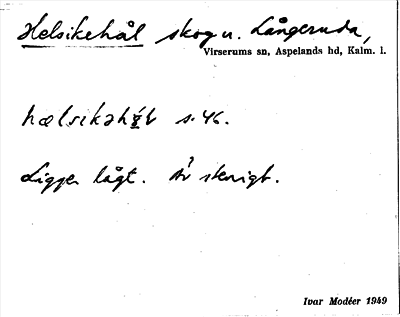 Helsikehål skog u. Långeruda,
Virserums sn, Aspelands hd, Kalm. l.
s. 46.
Ligger lågt. Är stenigt.
Ivar Modéer 1949